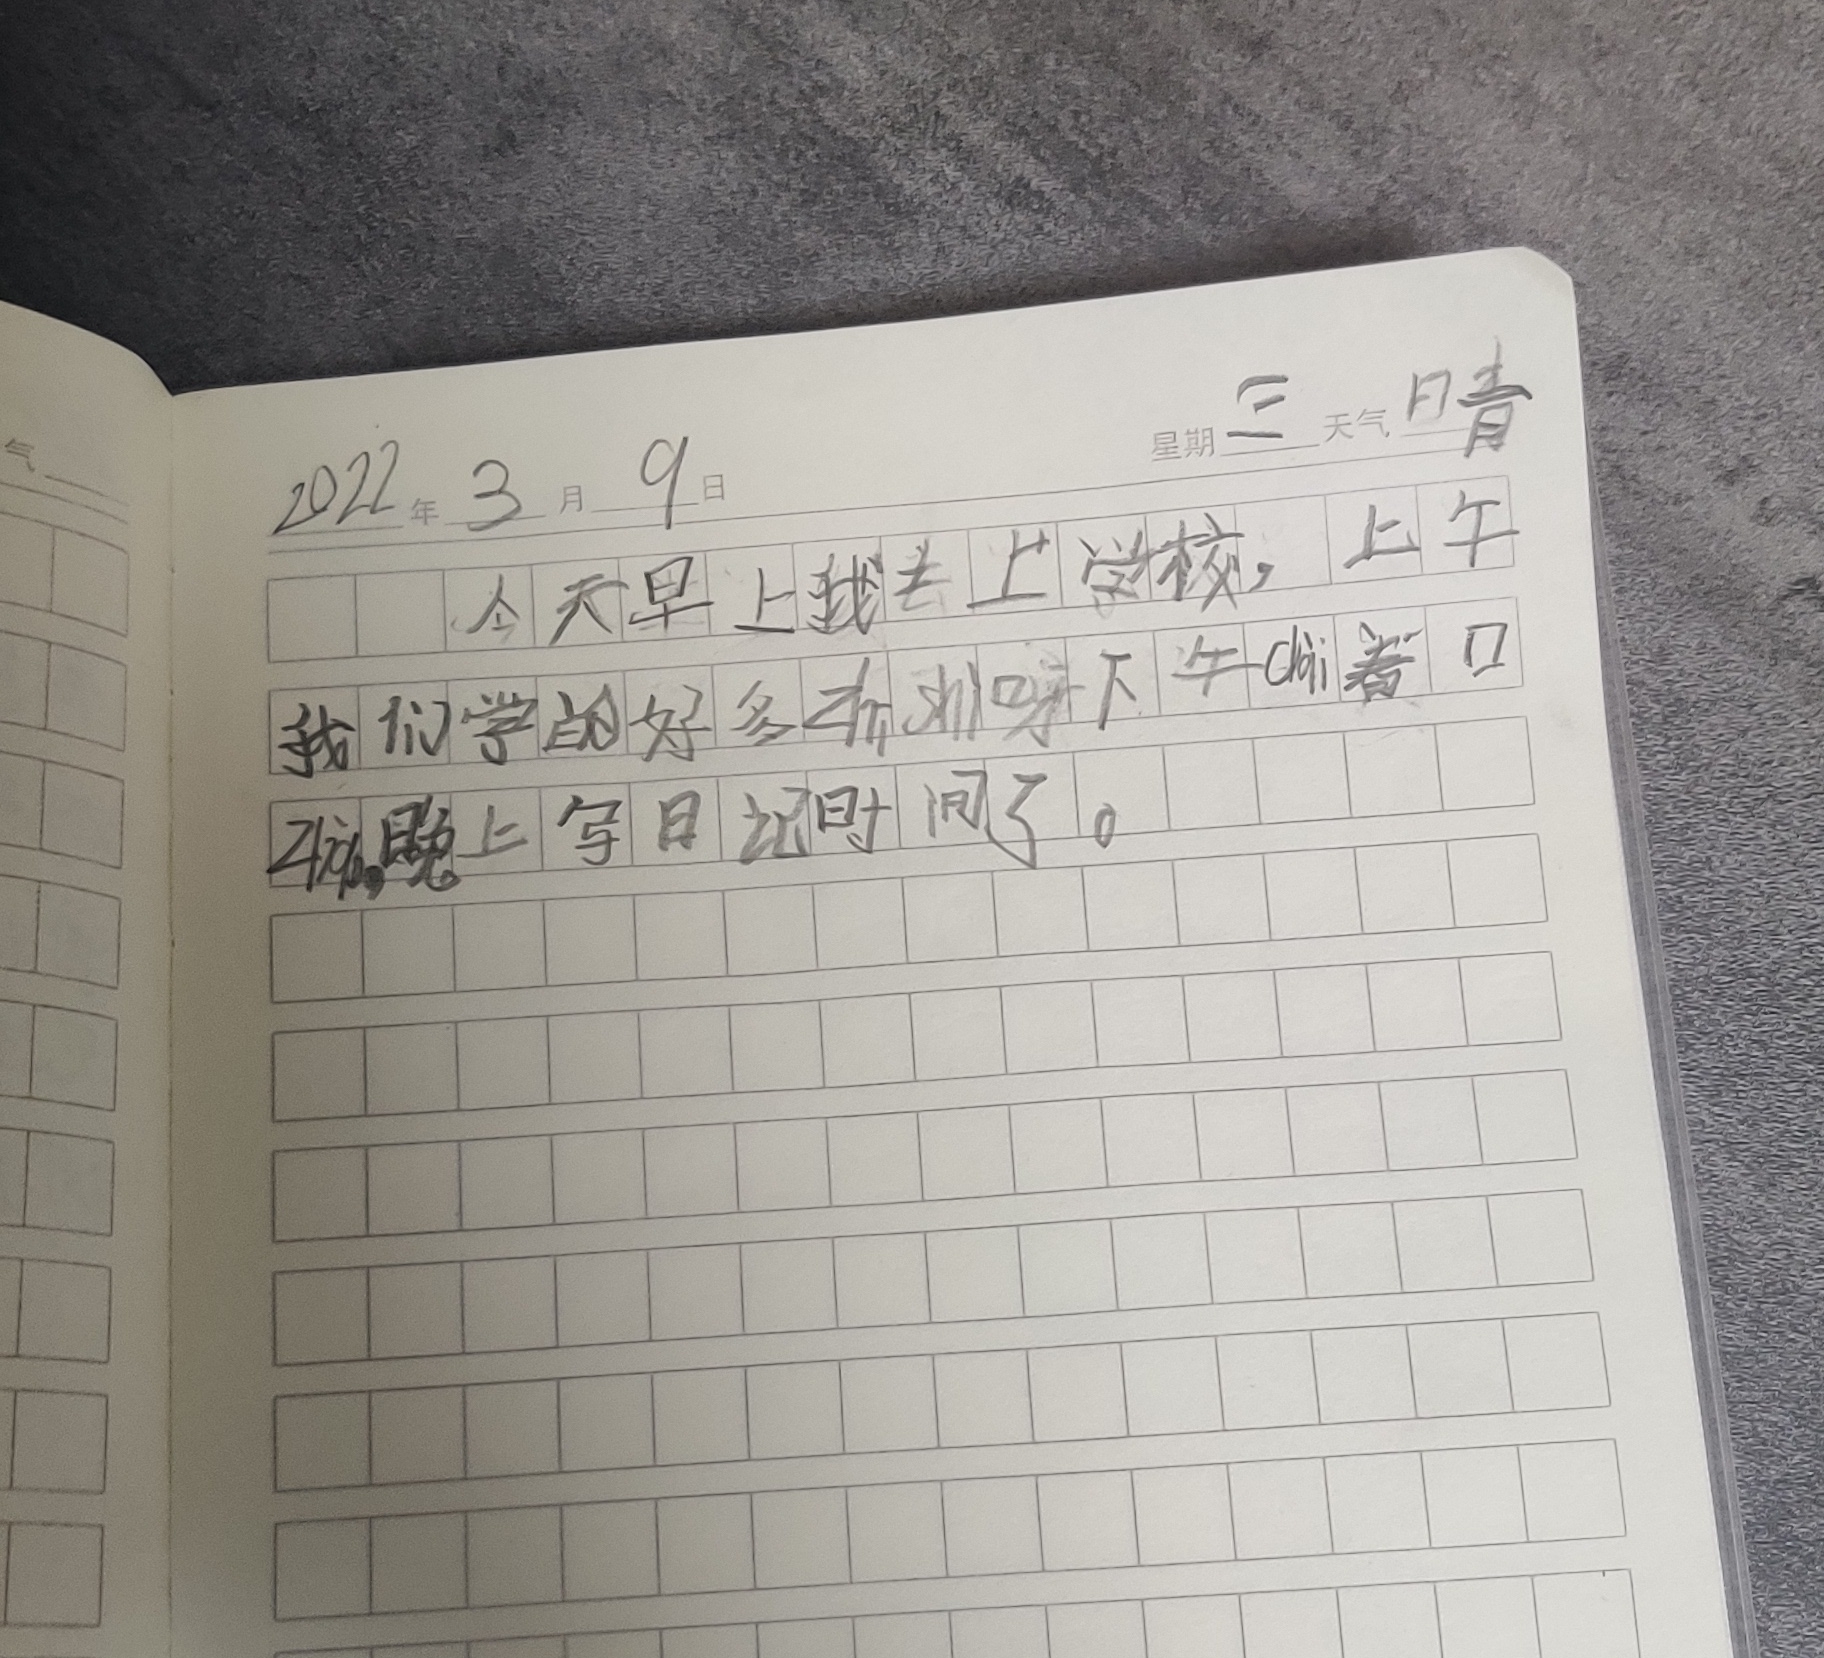 气
2022年3月9日 星期三 天气晴
今天早上我去上学校，上午
我们学的好多 下午dài着口
zhào,晚上写日记时间了。